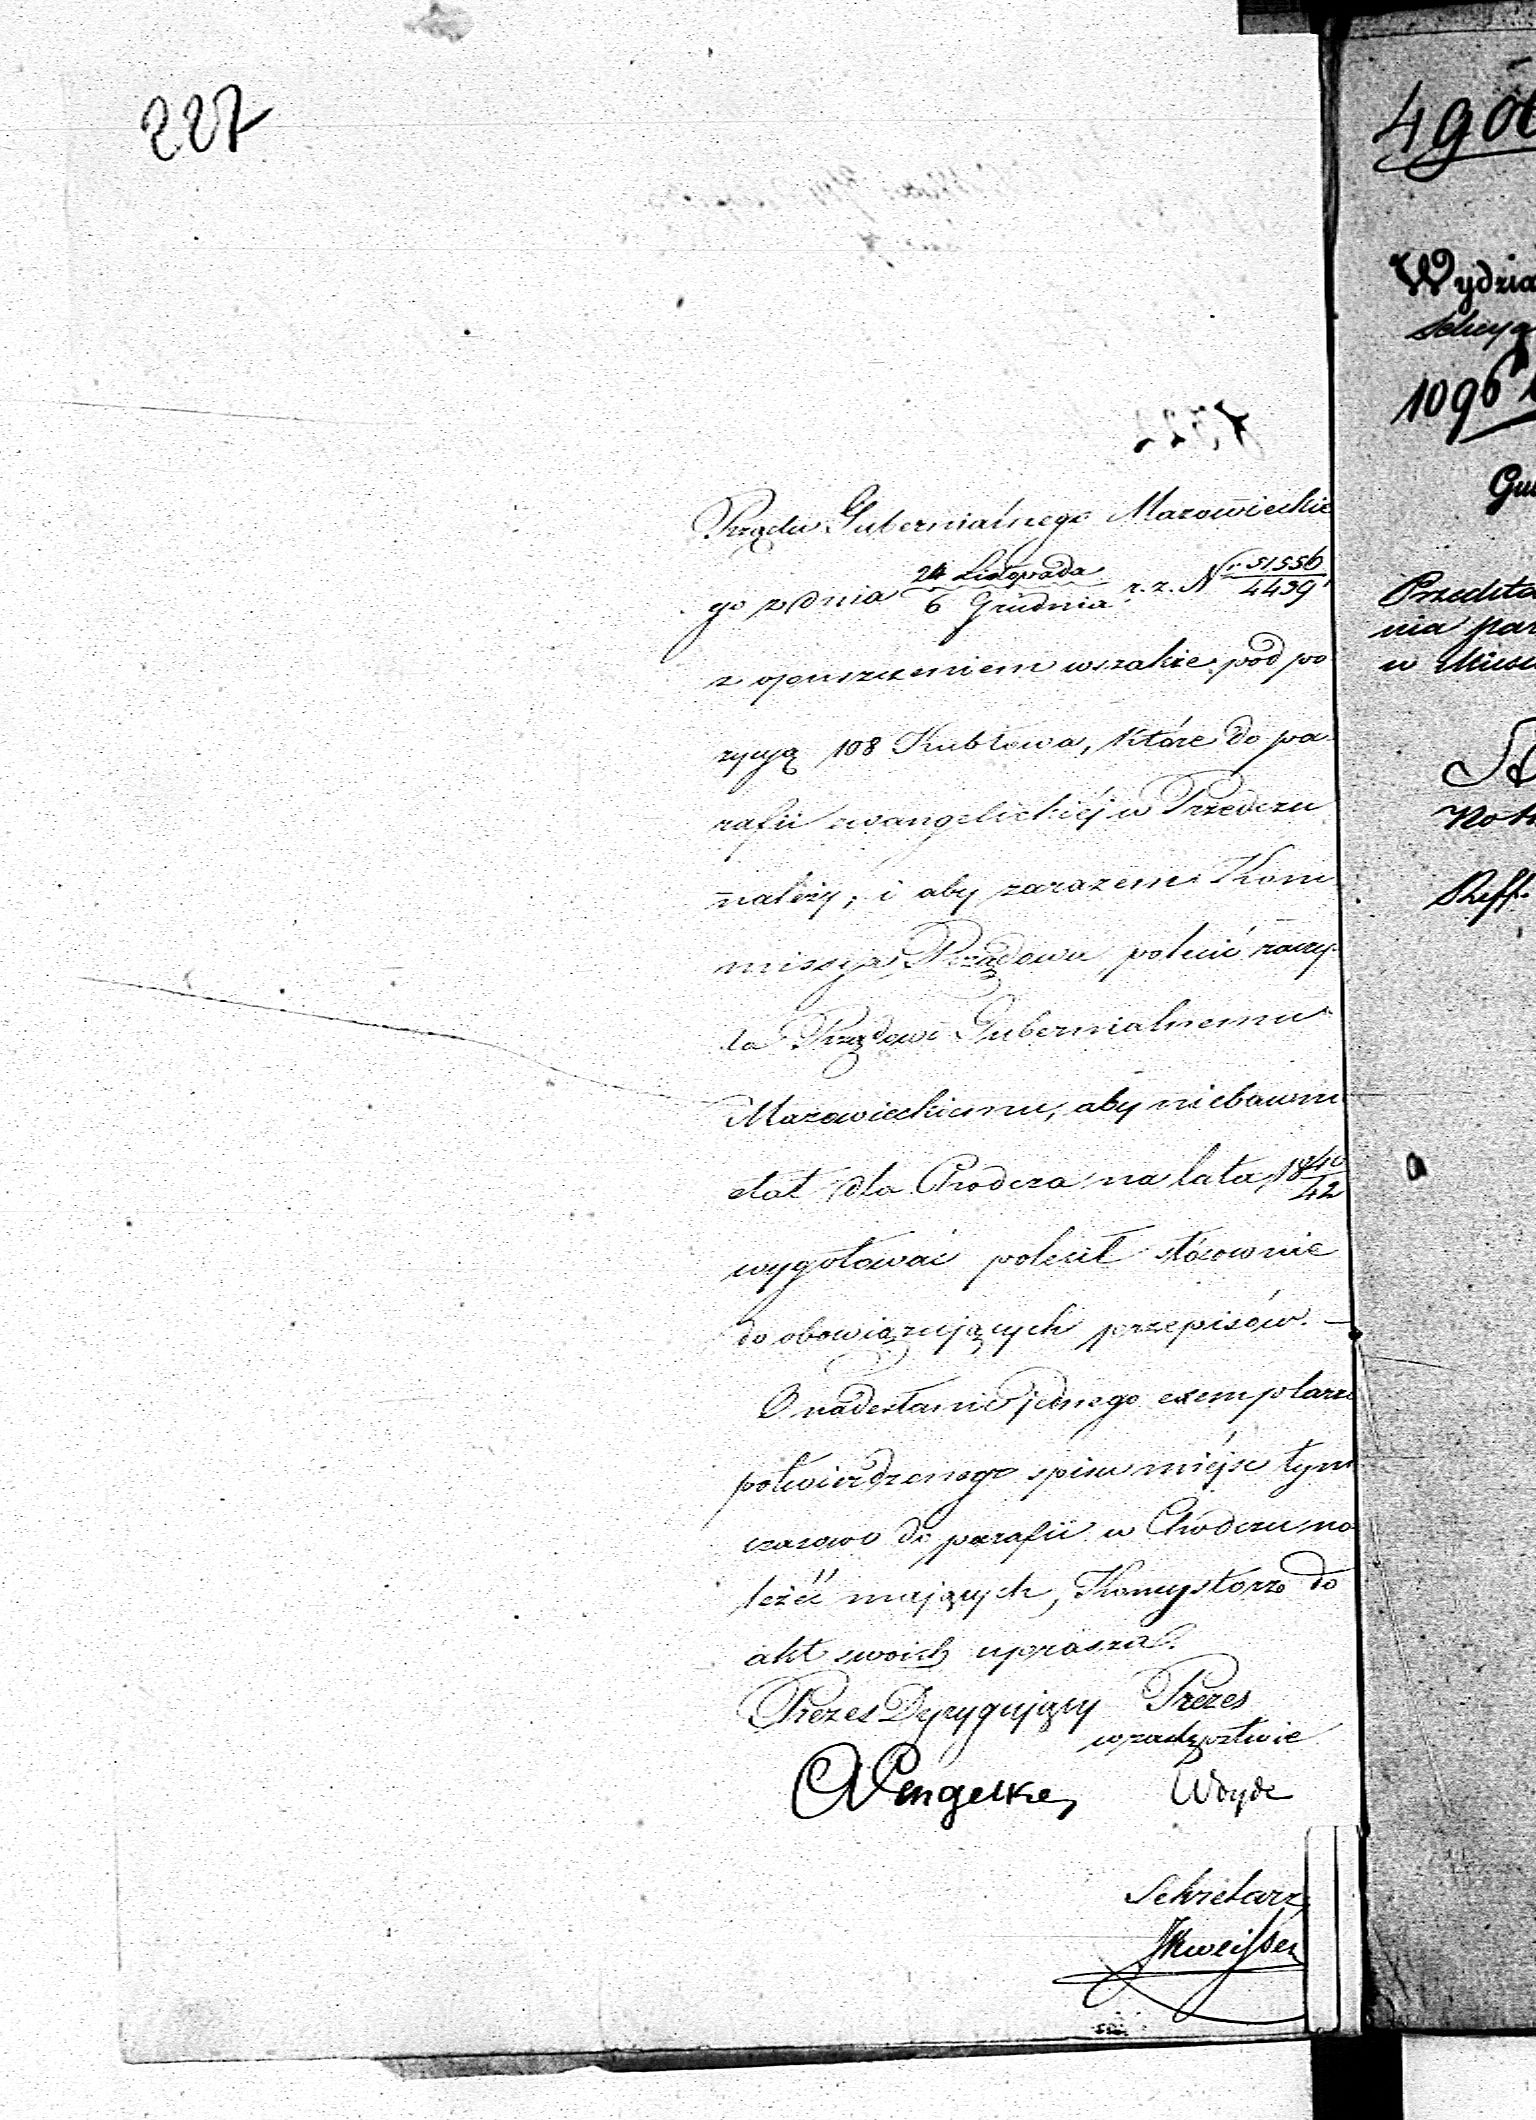 227
Rządu Gubernialnego Mazowieckie
go z dnia 24 Listopada / 6 Grudnia r. z. Nr 51556 / 4439
z opuszczeniem wszakże pod po
zycyą 108 Kubłowa, które do pa
rafii ewangelickiéj w Przedczu
należy; i aby zarazem Kom
missya Rządowa polecić raczy
ła Rządowi Gubernialnemu
Mazowieckiemu, aby niebawnie
etat dla Chodcza na lata 1840/42
wygotować polecił stósownie
do obowiązujących przepisów. —
O nadesłanie jednego exemplarza
potwierdzonego spisu miéjsc tym
czasowo do parafii w Chodczu na
leżéć mających, Konsystorz do
akt swoich uprasza.
Prezes Dyrygujący Prezes
w zastępstwie
Engelke Woyde
Sekretarz
490
Wydzia
1096
Gu
nia par
w Mieś
Reff.